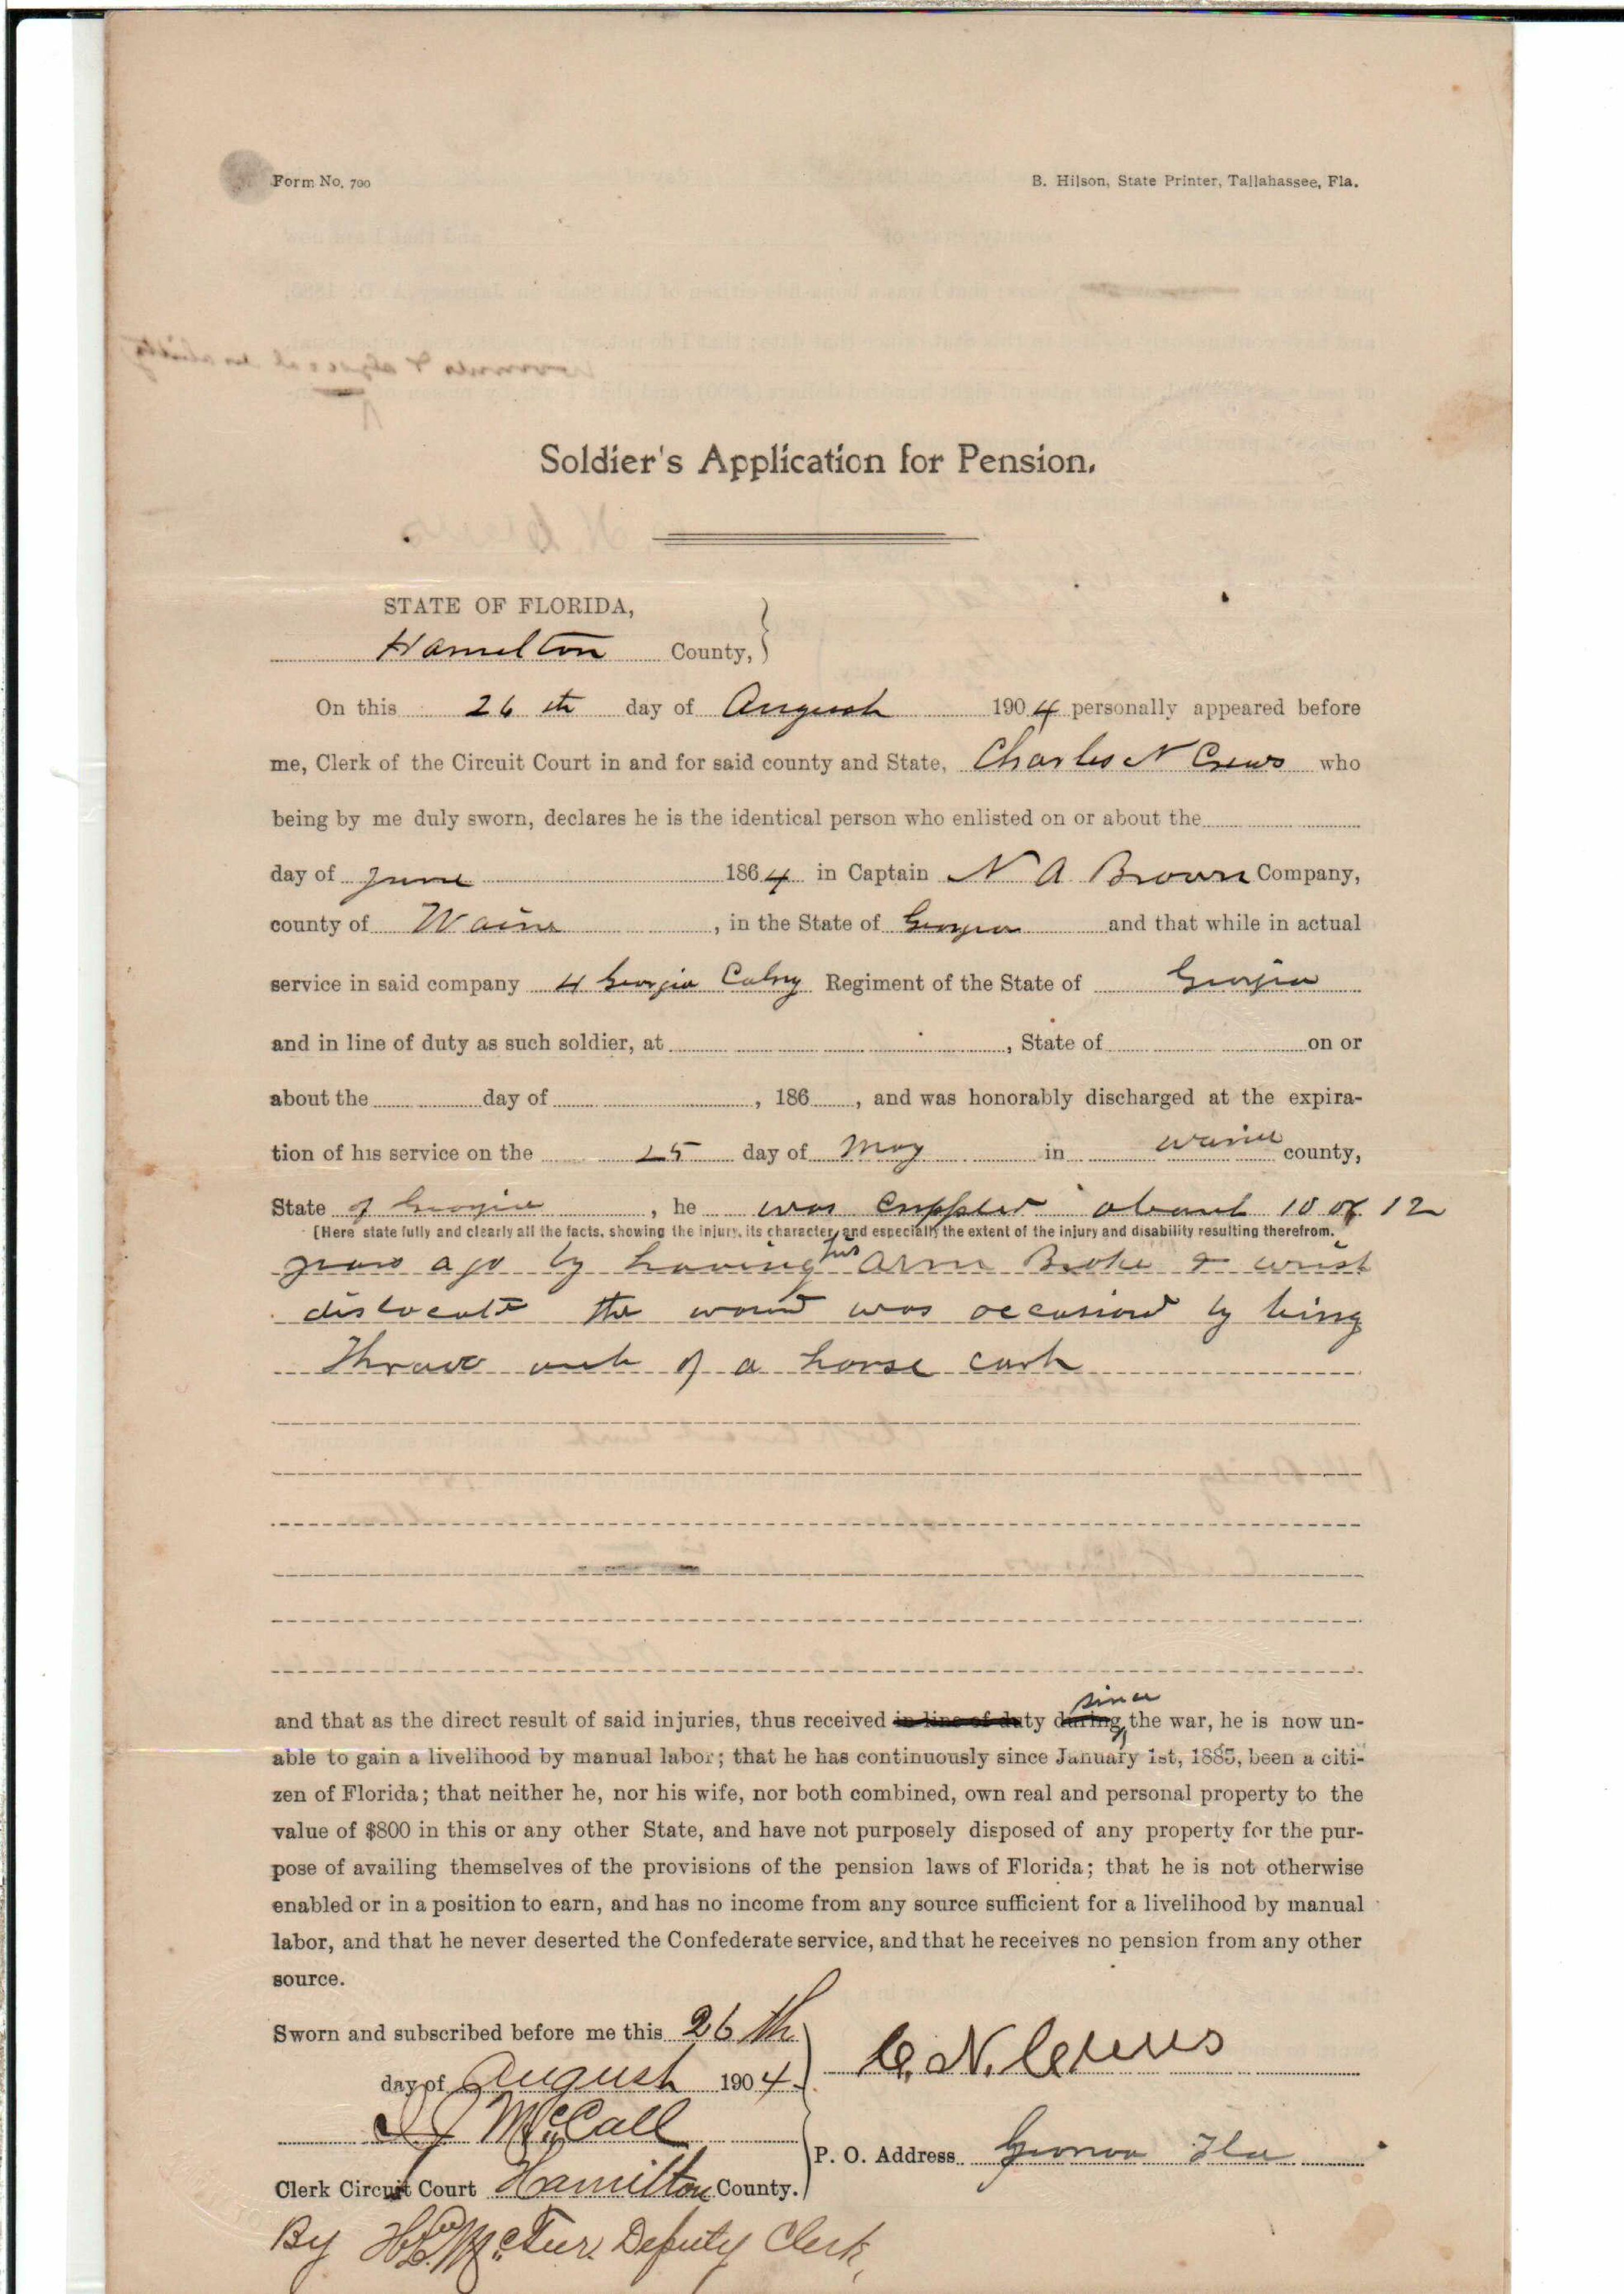 Form No. 700
B. Hilson, State Printer, Tallahassee, Fla.
Soldier's Application for Pension.
STATE OF FLORIDA,
Hamilton County,
On this 26 th day of August 1904 personally appeared before
me, Clerk of the Circuit Court in and for said county and State, Charles N Crews who
being by me duly sworn, declares he is the identical person who enlisted on or about the
day of June 1864 in Captain N A Brown Company,
county of Waine, in the State of Georgia and that while in actual
service in said company 4 Georgia Calvy Regiment of the State of Georgia
and in line of duty as such soldier, at , State of on or
about the day of , 186 , and was honorably discharged at the expira-
tion of his service on the 25 day of May in Waine county,
State of Georgia, he was crippled about 10 or 12
[Here state fully and clearly all the facts, showing the injury, its character, and especially the extent of the injury and disability resulting therefrom.
years ago by having his arm Broke & wrist
dislocate the wound was occasiond by being
Thrown out of a horse cart
and that as the direct result of said injuries, thus received in line of duty during since the war, he is now un-
able to gain a livelihood by manual labor; that he has continuously since January 1st, 1885, been a citi-
zen of Florida; that neither he, nor his wife, nor both combined, own real and personal property to the
value of $800 in this or any other State, and have not purposely disposed of any property for the pur-
pose of availing themselves of the provisions of the pension laws of Florida; that he is not otherwise
enabled or in a position to earn, and has no income from any source sufficient for a livelihood by manual
labor, and that he never deserted the Confederate service, and that he receives no pension from any other
source.
Sworn and subscribed before me this 26th
day of August 1904
C. N. Crews
McCall
P. O. Address Genoa Fla
Clerk Circuit Court Hamilton County.
By Deputy Clerk,